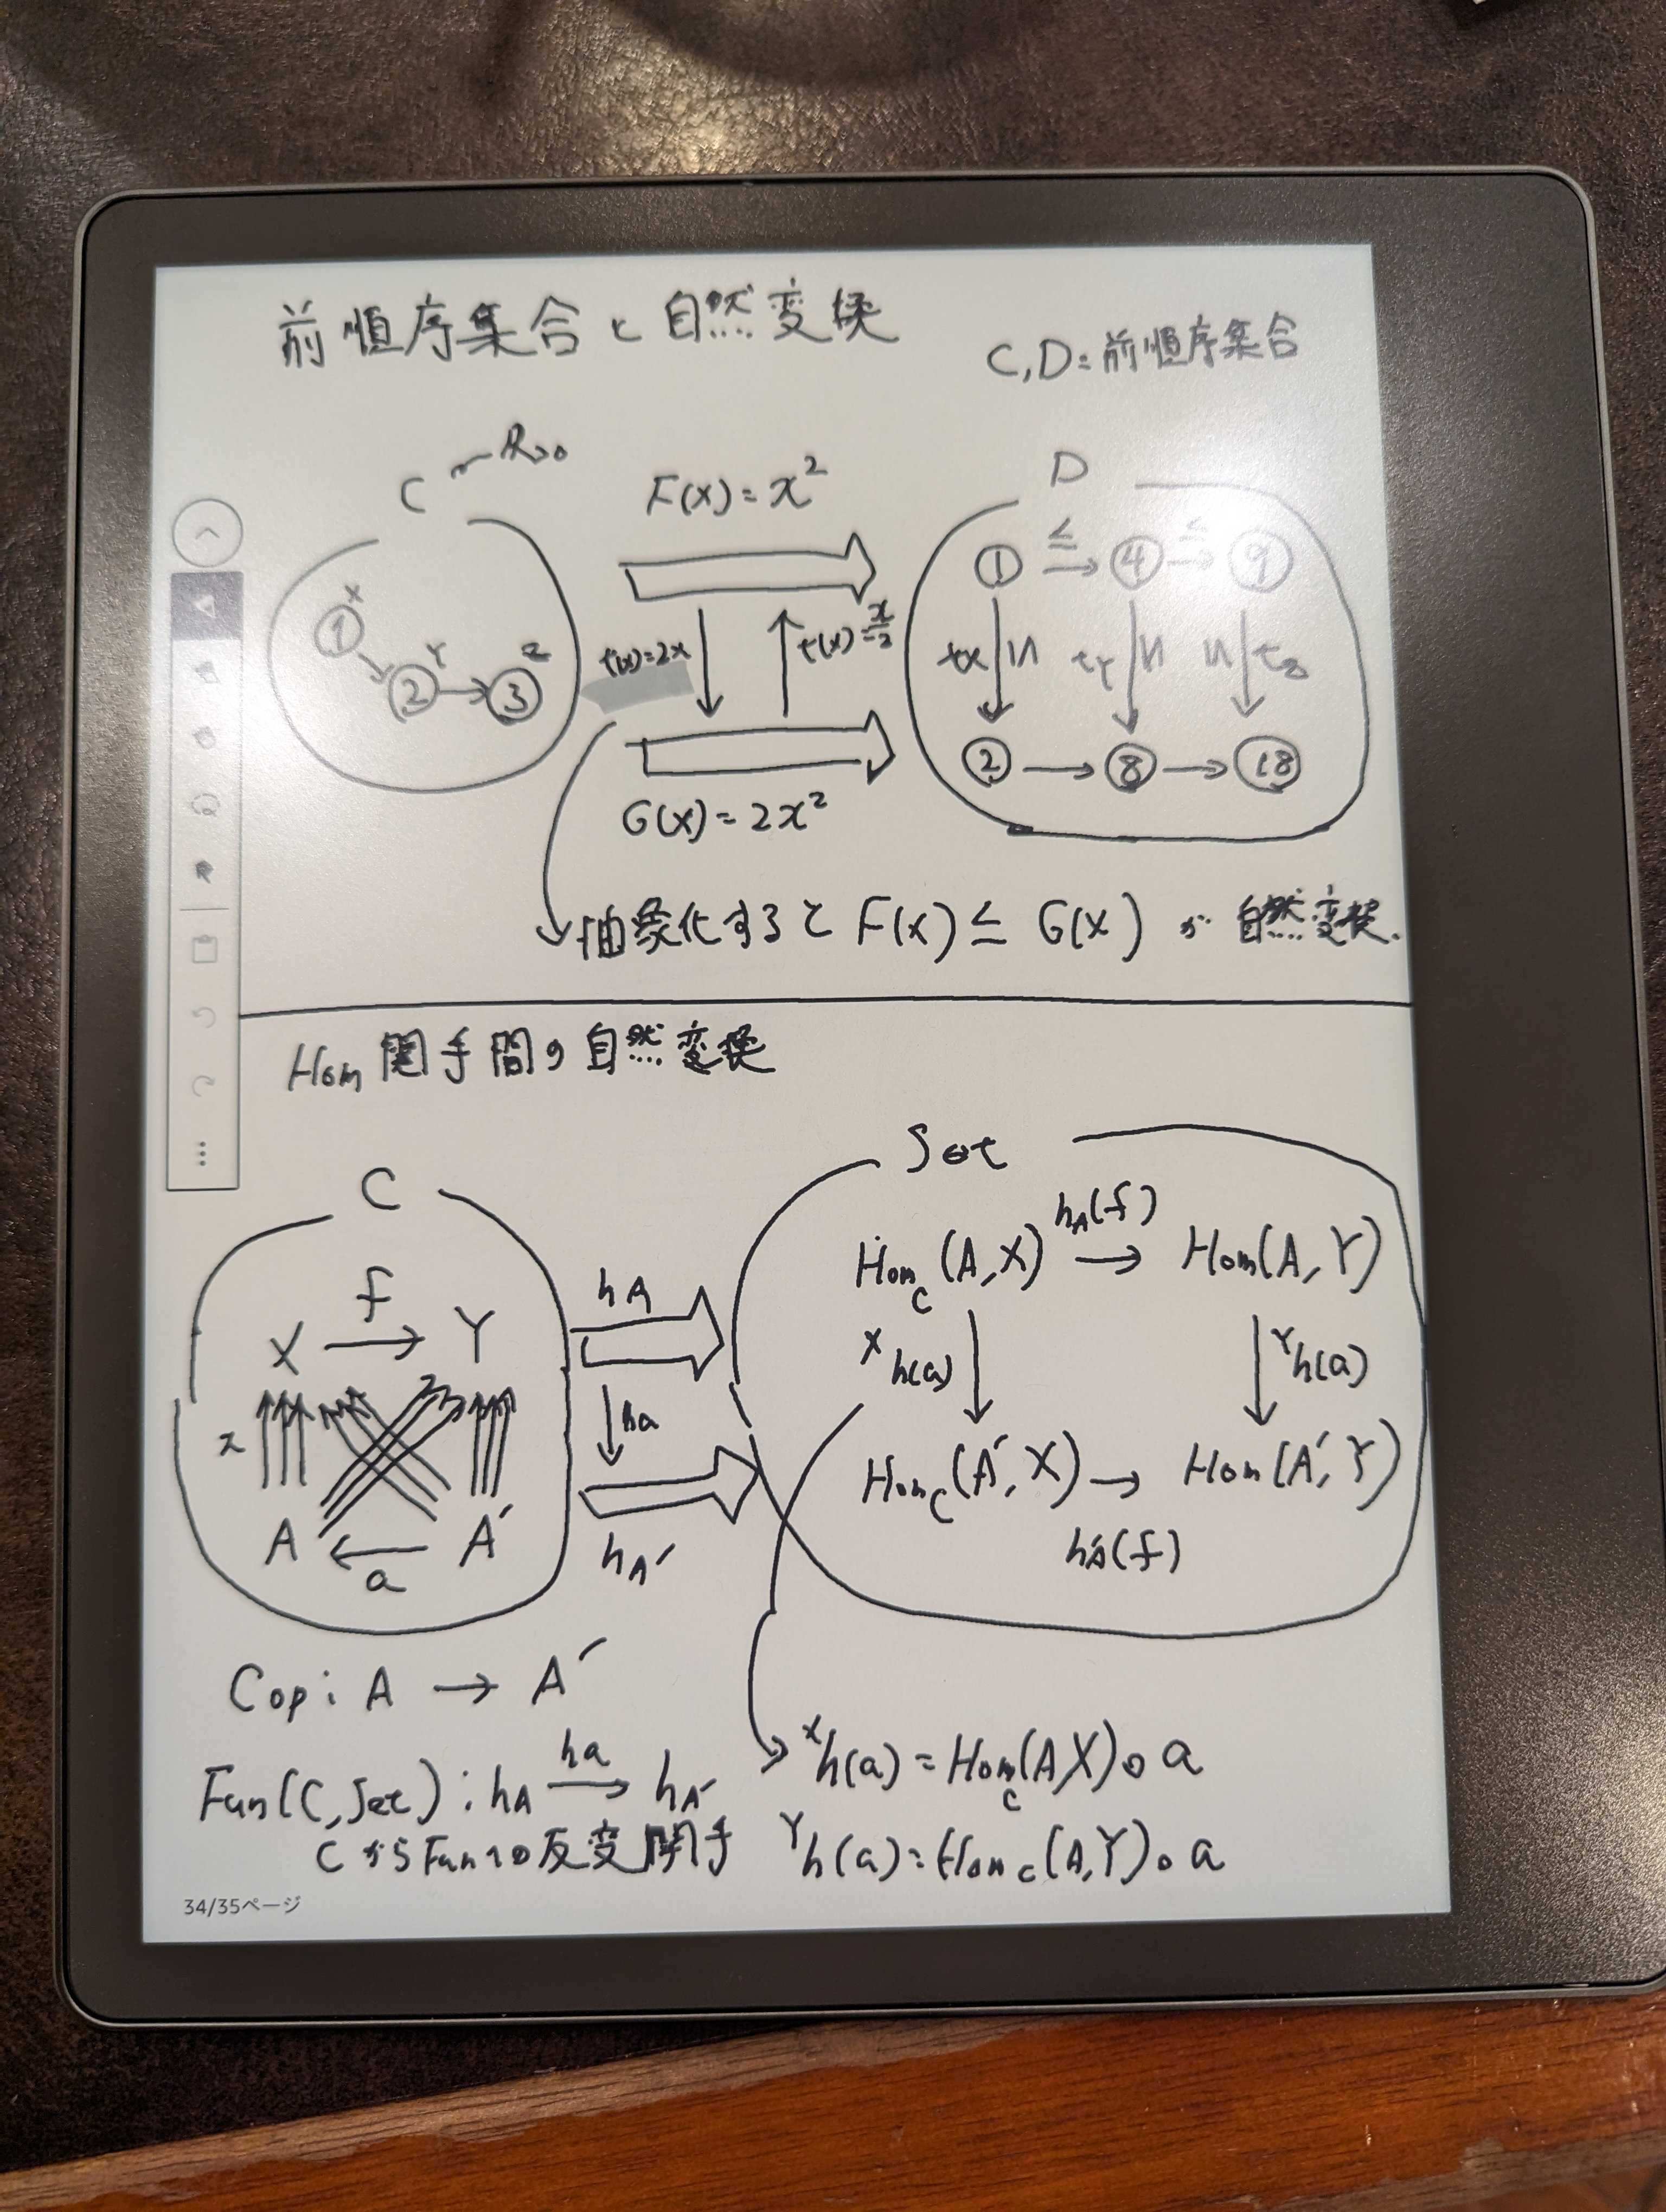 前順序集合と自然変換
C,D=前順序集合
C R>0
F(x)=x²
D
① ≤→ ④ ≤→ ⑨
①x → ②Y → ③z
t(x)=2x
t(x)=x/2
tx tY tz
② → ⑧ → ⑱
G(x)=2x²
抽象化すると F(x)≤G(x) が 自然変換.
Hom関手間の自然変換
C
Set
f
X → Y
x
A ← A′
a
hA
ha
hA′
hA(f)
HomC(A,X) → Hom(A,Y)
Xh(a) Yh(a)
HomC(A′,X) → Hom(A′,Y)
hA′(f)
Cop: A → A′
Fun(C,Set): hA ha→ hA′
CからFunへの反変関手
Xh(a)=HomC(AX)∘a
Yh(a)=HomC(A,Y)∘a
34/35ページ